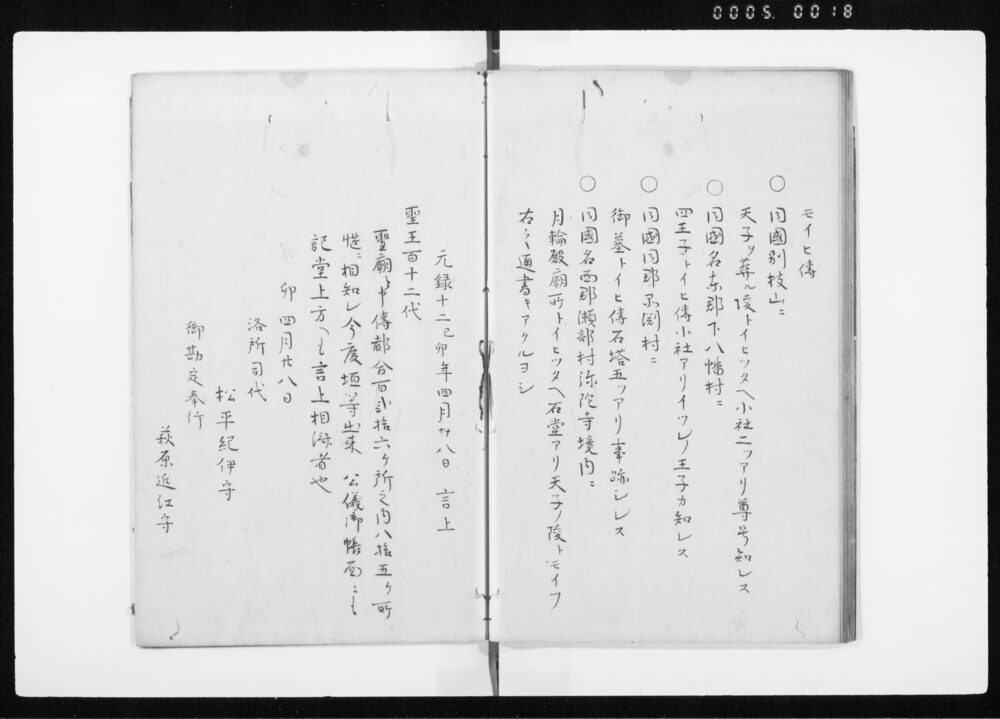 0005. 0018
モイヒ傳
○ 同國別枝山ニ
天子ヲ葬ル陵トイヒツタヘ小社二ツアリ尊号知レス
○ 同國名東郡下八幡村ニ
四王子トイヒ傳小社アリイツレノ王子カ知レス
○ 同國同郡不渕村ニ
御墓トイヒ傳石塔五ツアリ事跡シレス
○ 同國名西郡瀬部村弥陀寺境内ニ
月輪殿廟所トイヒツタヘ石堂アリ天子ノ陵トモイフ
右之通書キアクルヨシ
元録十二己卯年四月廿八日 言上
聖王百十二代
聖廟 申傳都合百弐拾六ケ所之内八拾五ケ所
慥ニ相知レ今度垣等出来 公儀御帳面ニも
記堂上方へも言上相済者也
卯 四月廿八日
洛所司代
松平紀伊守
御勘定奉行
萩原近江守